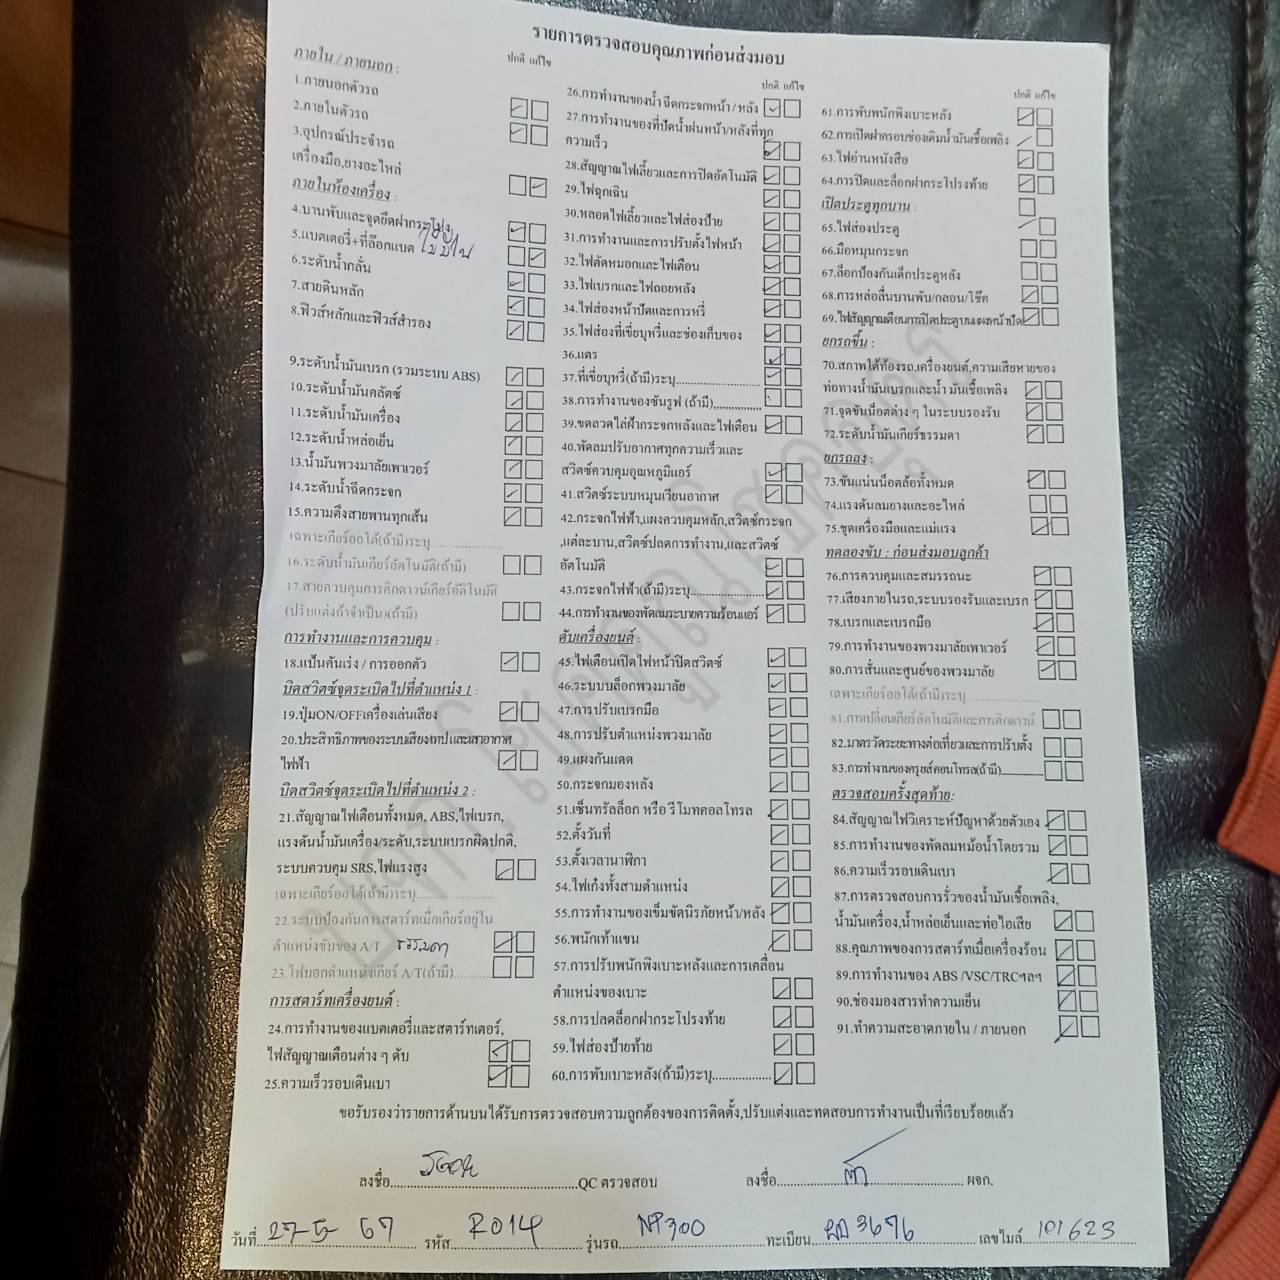 รายการตรวจสอบคุณภาพก่อนส่งมอบ
ภายใน / ภายนอก :
ปกติ แก้ไข
1.ภายนอกตัวรถ
2.ภายในตัวรถ
3.อุปกรณ์ประจำรถ
เครื่องมือ,ยางอะไหล่
ภายในห้องเครื่อง :
4.บานพับและจุดยึดฝากระโปรง
5.แบตเตอรี่+ที่ล๊อกแบต ไม่มีไฟ
6.ระดับน้ำกลั่น
7.สายดินหลัก
8.ฟิวส์หลักและฟิวส์สำรอง
9.ระดับน้ำมันเบรก (รวมระบบ ABS)
10.ระดับน้ำมันคลัตช์
11.ระดับน้ำมันเครื่อง
12.ระดับน้ำหล่อเย็น
13.น้ำมันพวงมาลัยเพาเวอร์
14.ระดับน้ำฉีดกระจก
15.ความตึงสายพานทุกเส้น
เฉพาะเกียร์ออโต้(ถ้ามี)ระบุ
16.ระดับน้ำมันเกียร์อัตโนมัติ(ถ้ามี)
17.สายควบคุมการคิกดาวน์เกียร์อัตโนมัติ
(ปรับแต่งถ้าจำเป็น)(ถ้ามี)
การทำงานและการควบคุม :
18.แป้นคันเร่ง / การออกตัว
บิดสวิตซ์จุดระเบิดไปที่ตำแหน่ง 1 :
19.ปุ่มON/OFFเครื่องเล่นเสียง
20.ประสิทธิภาพของระบบเสียงเทป และเสาอากาศ
ไฟฟ้า
บิดสวิตซ์จุดระเบิดไปที่ตำแหน่ง 2 :
21.สัญญาณไฟเตือนทั้งหมด, ABS,ไฟเบรก,
แรงดันน้ำมันเครื่อง/ระดับ,ระบบเบรกผิดปกติ,
ระบบควบคุม SRS,ไฟแรงสูง
เฉพาะเกียร์ออโต้(ถ้ามี)ระบุ
22.ระบบป้องกันการสตาร์ทเมื่อเกียร์อยู่ใน
ตำแหน่งขับของ A/T ธรรมดา
23.ไฟบอกตำแหน่งเกียร์ A/T(ถ้ามี)
การสตาร์ทเครื่องยนต์ :
24.การทำงานของแบตเตอรี่และสตาร์ทเตอร์,
ไฟสัญญาณเตือนต่าง ๆ ดับ
25.ความเร็วรอบเดินเบา
ปกติ แก้ไข
26.การทำงานของน้ำฉีดกระจกหน้า / หลัง
27.การทำงานของที่ปัดน้ำฝนหน้า/หลังที่ทุก
ความเร็ว
28.สัญญาณไฟเลี้ยวและการปิดอัตโนมัติ
29.ไฟฉุกเฉิน
30.หลอดไฟเลี้ยวและไฟส่องป้าย
31.การทำงานและการปรับตั้งไฟหน้า
32.ไฟตัดหมอกและไฟเตือน
33.ไฟเบรกและไฟถอยหลัง
34.ไฟส่องหน้าปัดและการหรี่
35.ไฟส่องที่เขี่ยบุหรี่และช่องเก็บของ
36.แตร
37.ที่เขี่ยบุหรี่(ถ้ามี)ระบุ
38.การทำงานของซันรูฟ (ถ้ามี)
39.ขดลวดไล่ฝ้ากระจกหลังและไฟเตือน
40.พัดลมปรับอากาศทุกความเร็วและ
สวิตซ์ควบคุมอุณหภูมิแอร์
41.สวิตซ์ระบบหมุนเวียนอากาศ
42.กระจกไฟฟ้า,แผงควบคุมหลัก,สวิตซ์กระจก
,แต่ละบาน,สวิตซ์ปลดการทำงาน,และสวิตซ์
อัตโนมัติ
43.กระจกไฟฟ้า(ถ้ามี)ระบุ
44.การทำงานของพัดลมระบายความร้อนแอร์
ดับเครื่องยนต์ :
45.ไฟเตือนเปิดไฟหน้าปิดสวิตซ์
46.ระบบบล็อกพวงมาลัย
47.การปรับเบรกมือ
48.การปรับตำแหน่งพวงมาลัย
49.แผงกันแดด
50.กระจกมองหลัง
51.เซ็นทรัลล็อก หรือ รีโมทคอลโทรล
52.ตั้งวันที่
53.ตั้งเวลานาฬิกา
54.ไฟเก๋งทั้งสามตำแหน่ง
55.การทำงานของเข็มขัดนิรภัยหน้า/หลัง
56.พนักเท้าแขน
57.การปรับพนักพิงเบาะหลังและการเคลื่อน
ตำแหน่งของเบาะ
58.การปลดล็อกฝากระโปรงท้าย
59.ไฟส่องป้ายท้าย
60.การพับเบาะหลัง(ถ้ามี)ระบุ
ปกติ แก้ไข
61.การพับพนักพิงเบาะหลัง
62.การเปิดฝาครอบช่องเติมน้ำมันเชื้อเพลิง
63.ไฟอ่านหนังสือ
64.การปิดและล็อกฝากระโปรงท้าย
เปิดประตูทุกบาน :
65.ไฟส่องประตู
66.มือหมุนกระจก
67.ล็อกป้องกันเด็กประตูหลัง
68.การหล่อลื่นบานพับ/กลอน/โช๊ค
69.ไฟสัญญาณเตือนการปิดประตูบนแผงหน้าปัด
ยกรถขึ้น :
70.สภาพใต้ท้องรถ,เครื่องยนต์,ความเสียหายของ
ท่อทางน้ำมันเบรกและน้ำมันเชื้อเพลิง
71.จุดขันน็อตต่าง ๆ ในระบบรองรับ
72.ระดับน้ำมันเกียร์ธรรมดา
ยกรถลง :
73.ขันแน่นน็อตล้อทั้งหมด
74.แรงดันลมยางและอะไหล่
75.ชุดเครื่องมือและแม่แรง
ทดลองขับ : ก่อนส่งมอบลูกค้า
76.การควบคุมและสมรรถนะ
77.เสียงภายในรถ,ระบบรองรับและเบรก
78.เบรกและเบรกมือ
79.การทำงานของพวงมาลัยเพาเวอร์
80.การสั่นและศูนย์ของพวงมาลัย
เฉพาะเกียร์ออโต้(ถ้ามี)ระบุ
81.การเปลี่ยนเกียร์อัตโนมัติและการคิกดาวน์
82.มาตรวัดระยะทางต่อเที่ยวและการปรับตั้ง
83.การทำงานของครูยส์คอนโทรล(ถ้ามี)
ตรวจสอบครั้งสุดท้าย:
84.สัญญาณไฟวิเคราะห์ปัญหาด้วยตัวเอง
85.การทำงานของพัดลมหม้อน้ำโดยรวม
86.ความเร็วรอบเดินเบา
87.การตรวจสอบการรั่วของน้ำมันเชื้อเพลิง,
น้ำมันเครื่อง,น้ำหล่อเย็นและท่อไอเสีย
88.คุณภาพของการสตาร์ทเมื่อเครื่องร้อน
89.การทำงานของ ABS /VSC/TRCฯลฯ
90.ช่องมองสารทำความเย็น
91.ทำความสะอาดภายใน / ภายนอก
ขอรับรองว่ารายการด้านบนได้รับการตรวจสอบความถูกต้องของการติดตั้ง,ปรับแต่งและทดสอบการทำงานเป็นที่เรียบร้อยแล้ว
ลงชื่อ QC ตรวจสอบ ลงชื่อ ผจก.
วันที่ 27-5-67 รหัส R014 รุ่นรถ NP300 ทะเบียน 3676 เลขไมล์ 101623